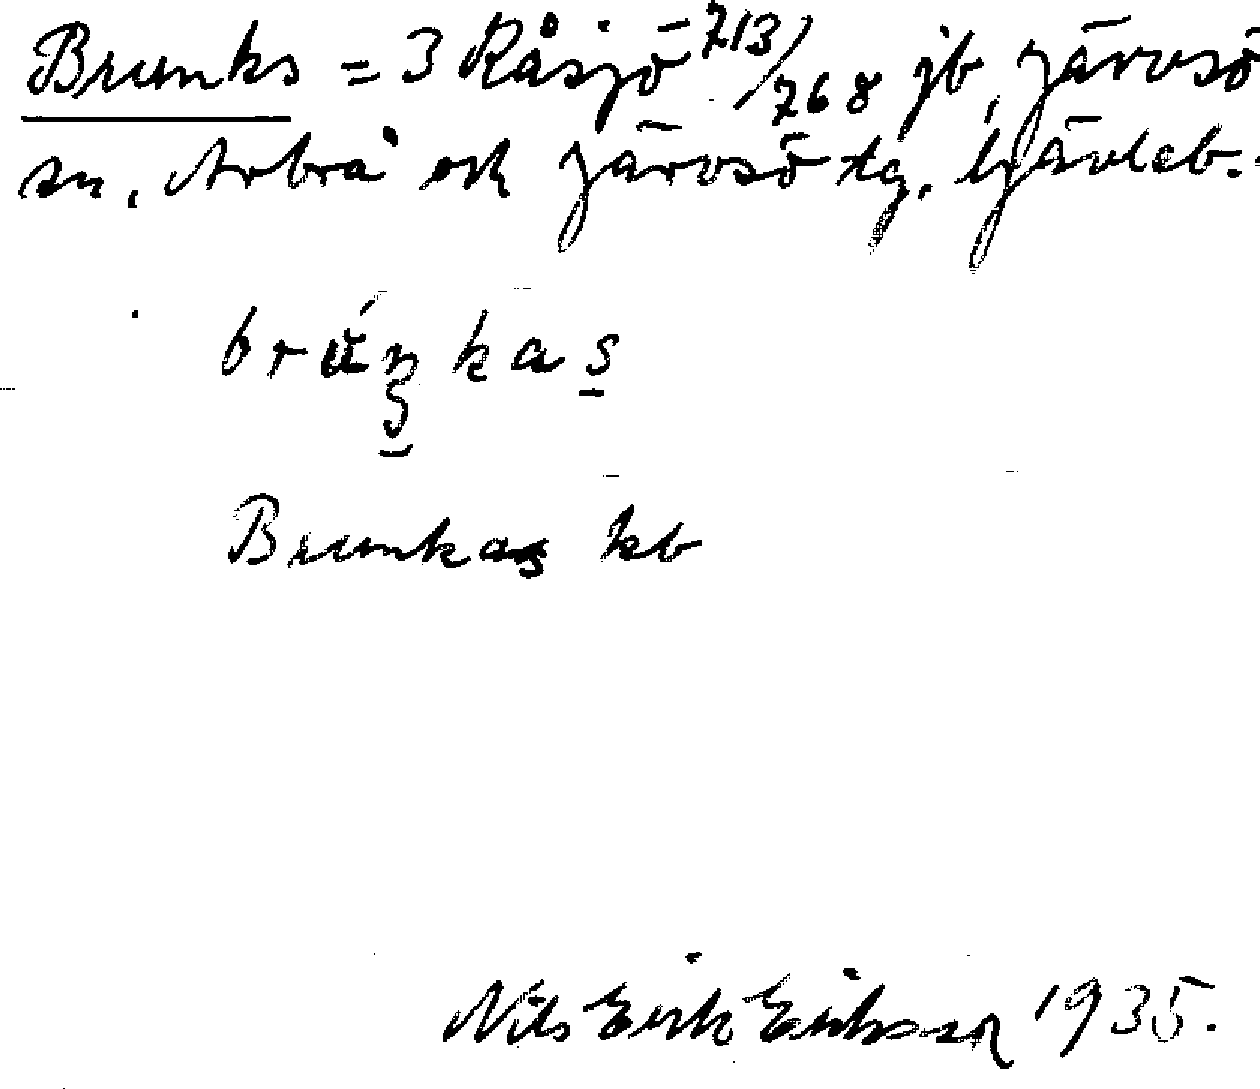 Brunks = 3 Råsjö 713/768 jb, Järvsö
sn, Arbrå och Järvsö tg. Gävleb.
brúŋkas
Brunkas kb
Nils Erik Eriksson 1935.